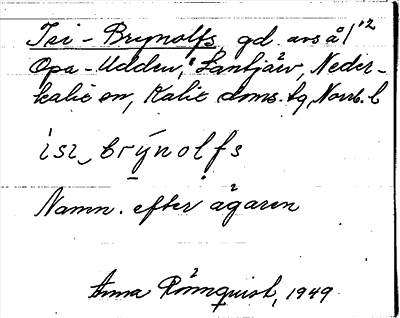 Isi-Brynolfs, gd. avs å 1/12
Opa-Udden, Santjärv, Neder-
kalix sn, Kalix doms. tg, Norrb. l
isi brynolfs
Namn. efter ägaren
Anna Rönnquist, 1949